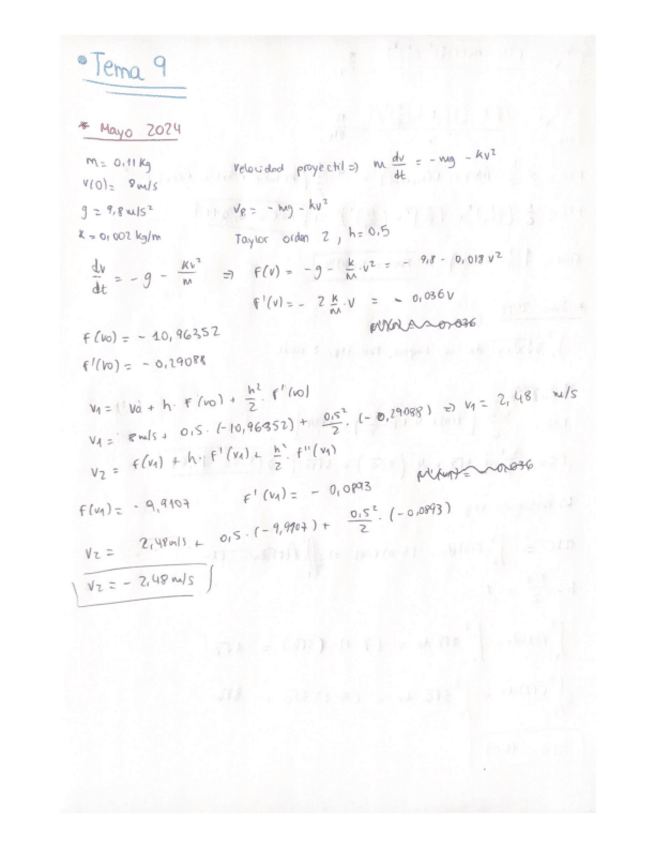 • Tema 9
* Mayo 2024
m = 0,11 kg
v(0) = 8 m/s
g = 9,8 m/s²
k = 0,002 kg/m
Velocidad proyectil => m dv/dt = - mg - kv²
VR = - mg - kv²
Taylor orden 2, h = 0,5
dv/dt = - g - kv²/m => f(v) = - g - k/m · v² = - 9,8 - 0,018 v²
f'(v) = - 2 k/m · v = - 0,036 v
f(v0) = - 10,96352
f'(v0) = - 0,29088
v1 = v0 + h · f(v0) + h²/2 · f'(v0)
v1 = 8 m/s + 0,5 · (-10,96352) + 0,5²/2 · (-0,29088) => v1 = 2,48 m/s
v2 = f(v1) + h · f'(v1) + h²/2 · f''(v1)
f(v1) = - 9,9107
f'(v1) = - 0,0893
v2 = 2,48 m/s + 0,5 · (-9,9107) + 0,5²/2 · (-0,0893)
v2 = - 2,48 m/s